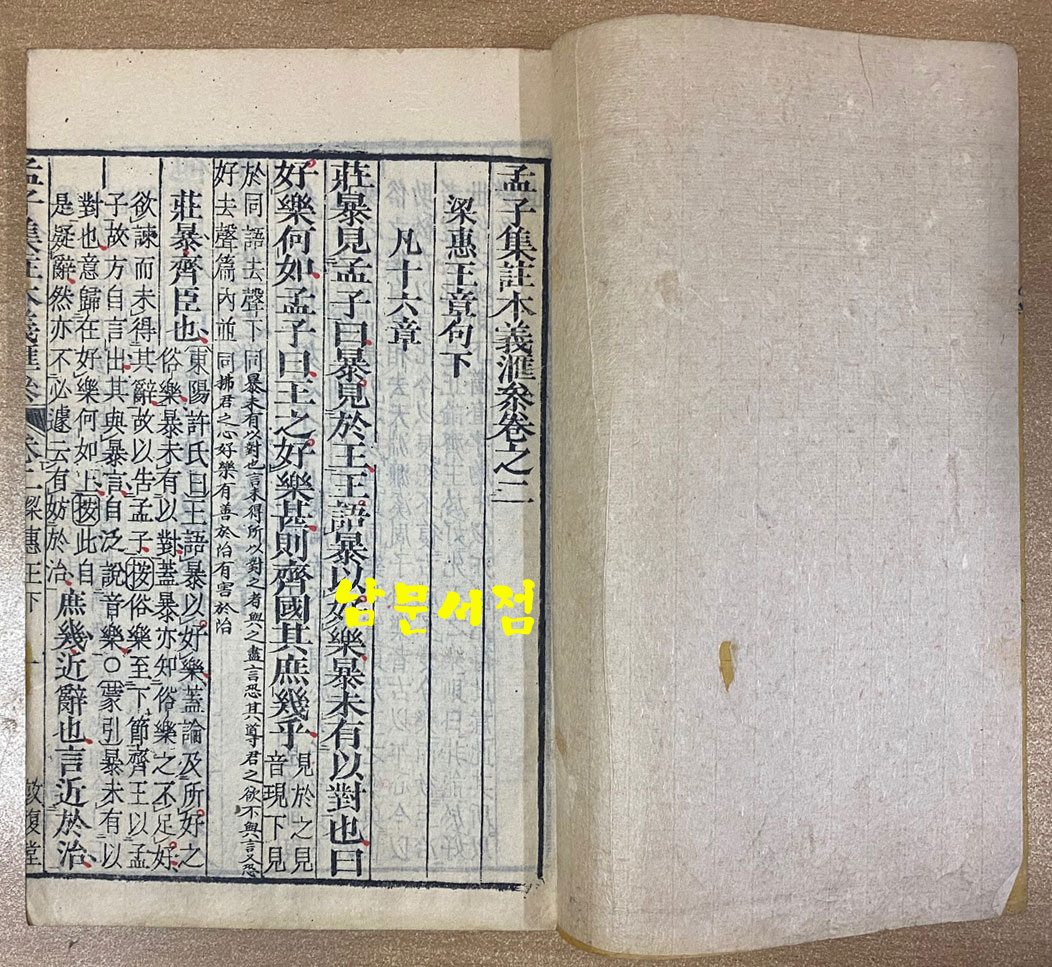 孟子集註本義滙參卷之二
梁惠王章句下
凡十六章
莊暴見孟子曰暴見於王王語暴以好樂暴未有以對也曰
好樂何如孟子曰王之好樂甚則齊國其庶幾乎
見於之見
音現下見
於同語去聲下同
好去聲篇內並同
暴未有以對也言未得所以對之者與之盡言恐其導君之欲不與言又恐
拂君之心好樂有善於治有害於治
莊暴齊臣也
東陽許氏曰王語暴以好樂蓋論及所好之
俗樂暴未有以對蓋暴亦知俗樂之不足好
欲諫而未得其辭故以告孟子按俗樂至下節齊王以孟
子故方自言出其與暴言自泛說音樂○蒙引暴未有以
對也意歸在好樂何如上按此自
是疑辭然亦不必遽云有妨於治
庶幾近辭也言近於治
孟子集註本義滙參
卷二梁惠王下
一
敦復堂
남문서점